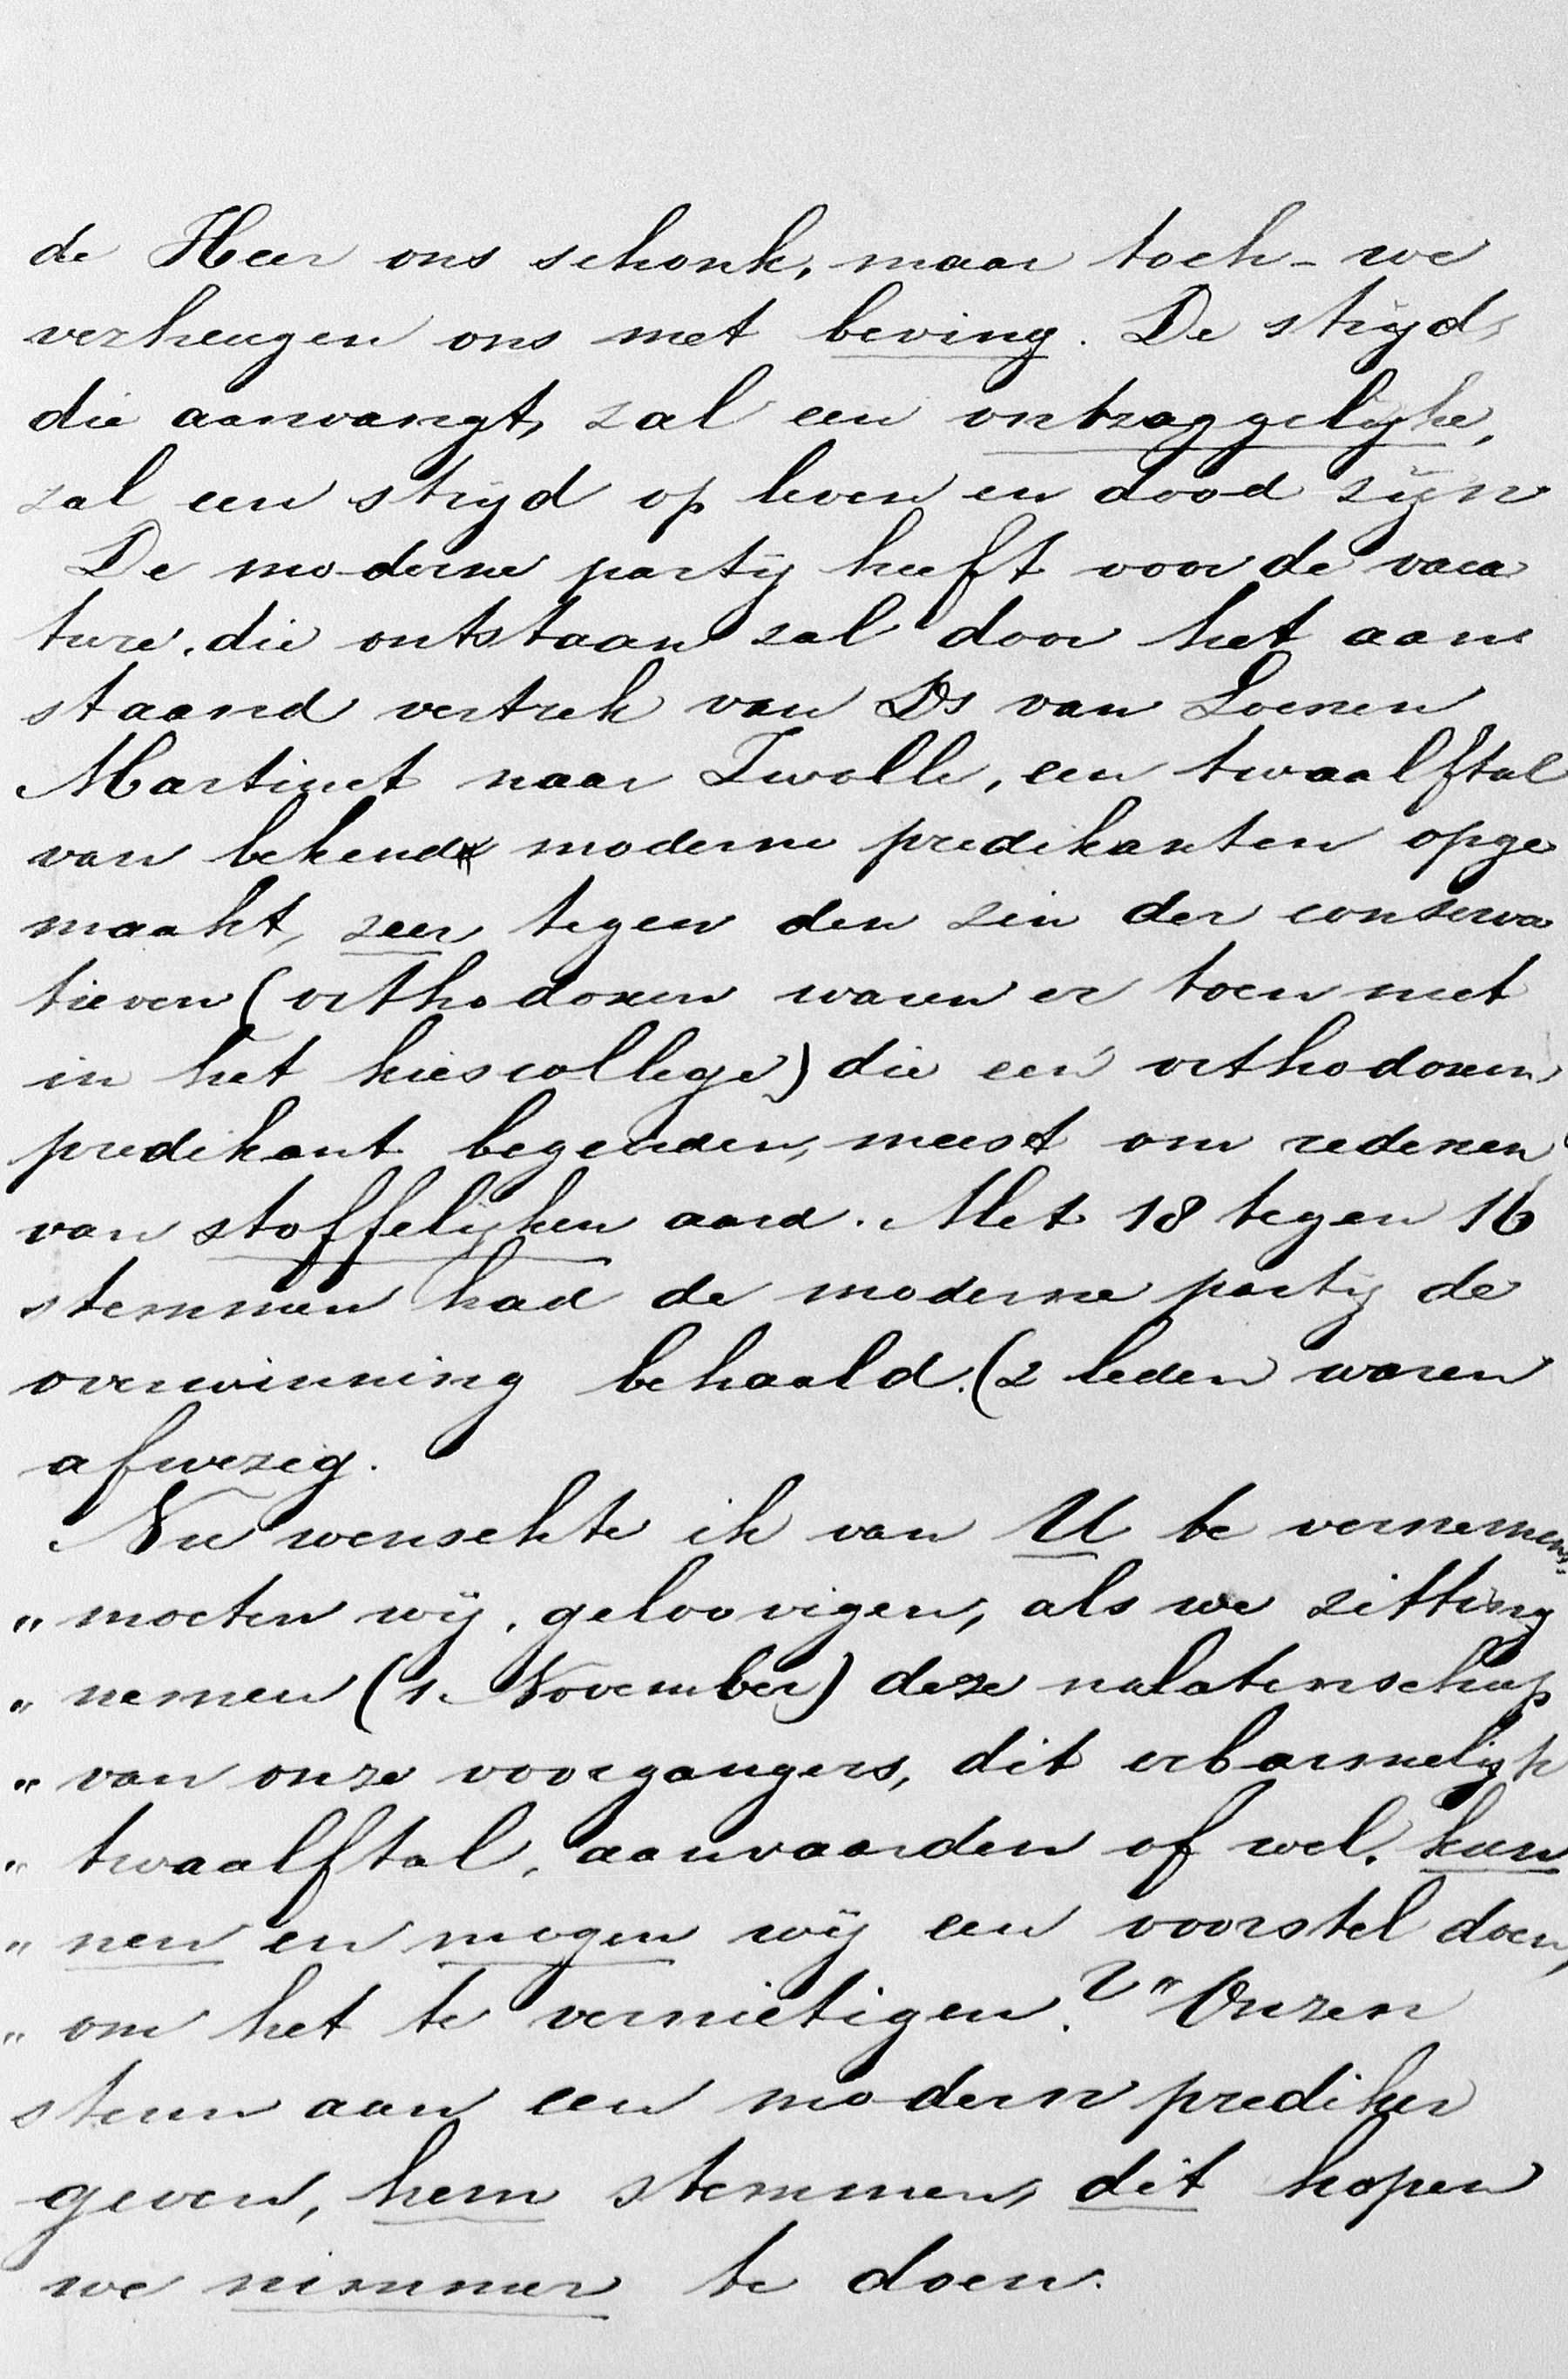 de Heer ons schonk, maar toch - we
verheugen ons met beving. De strijd,
die aanvangt, zal een ontzaggelijke,
zal een strijd op leven en dood zijn
De moderne partij heeft voor de vaca
ture, die ontstaan zal door het aan
staand vertrek van Ds van Loenen
Martinet naar Zwolle, een twaalftal
van bekend moderne predikanten opge
maakt, zeer tegen den zin der conserva
tieven (orthodoxen waren er toen niet
in het kiescollege) die een orthodoxen
predikant begeerden, meest om redenen
van stoffelijken aard. Met 18 tegen 16
stemmen had de moderne partij de
overwinning behaald. (2 leden waren
afwezig.
Nu wenschte ik van U te vernemen:
" moeten wij, geloovigen, als we zitting
" nemen (1. November) deze nalatenschap
" van onze voorgangers, dit erbarmelijk
" twaalftal, aanvaarden of wel, kun
" nen en mogen wij een voorstel doen,
" om het te vernietigen?" Onzen
steun aan een modern prediker
geven, hem stemmen, dit hopen
we nimmer te doen.